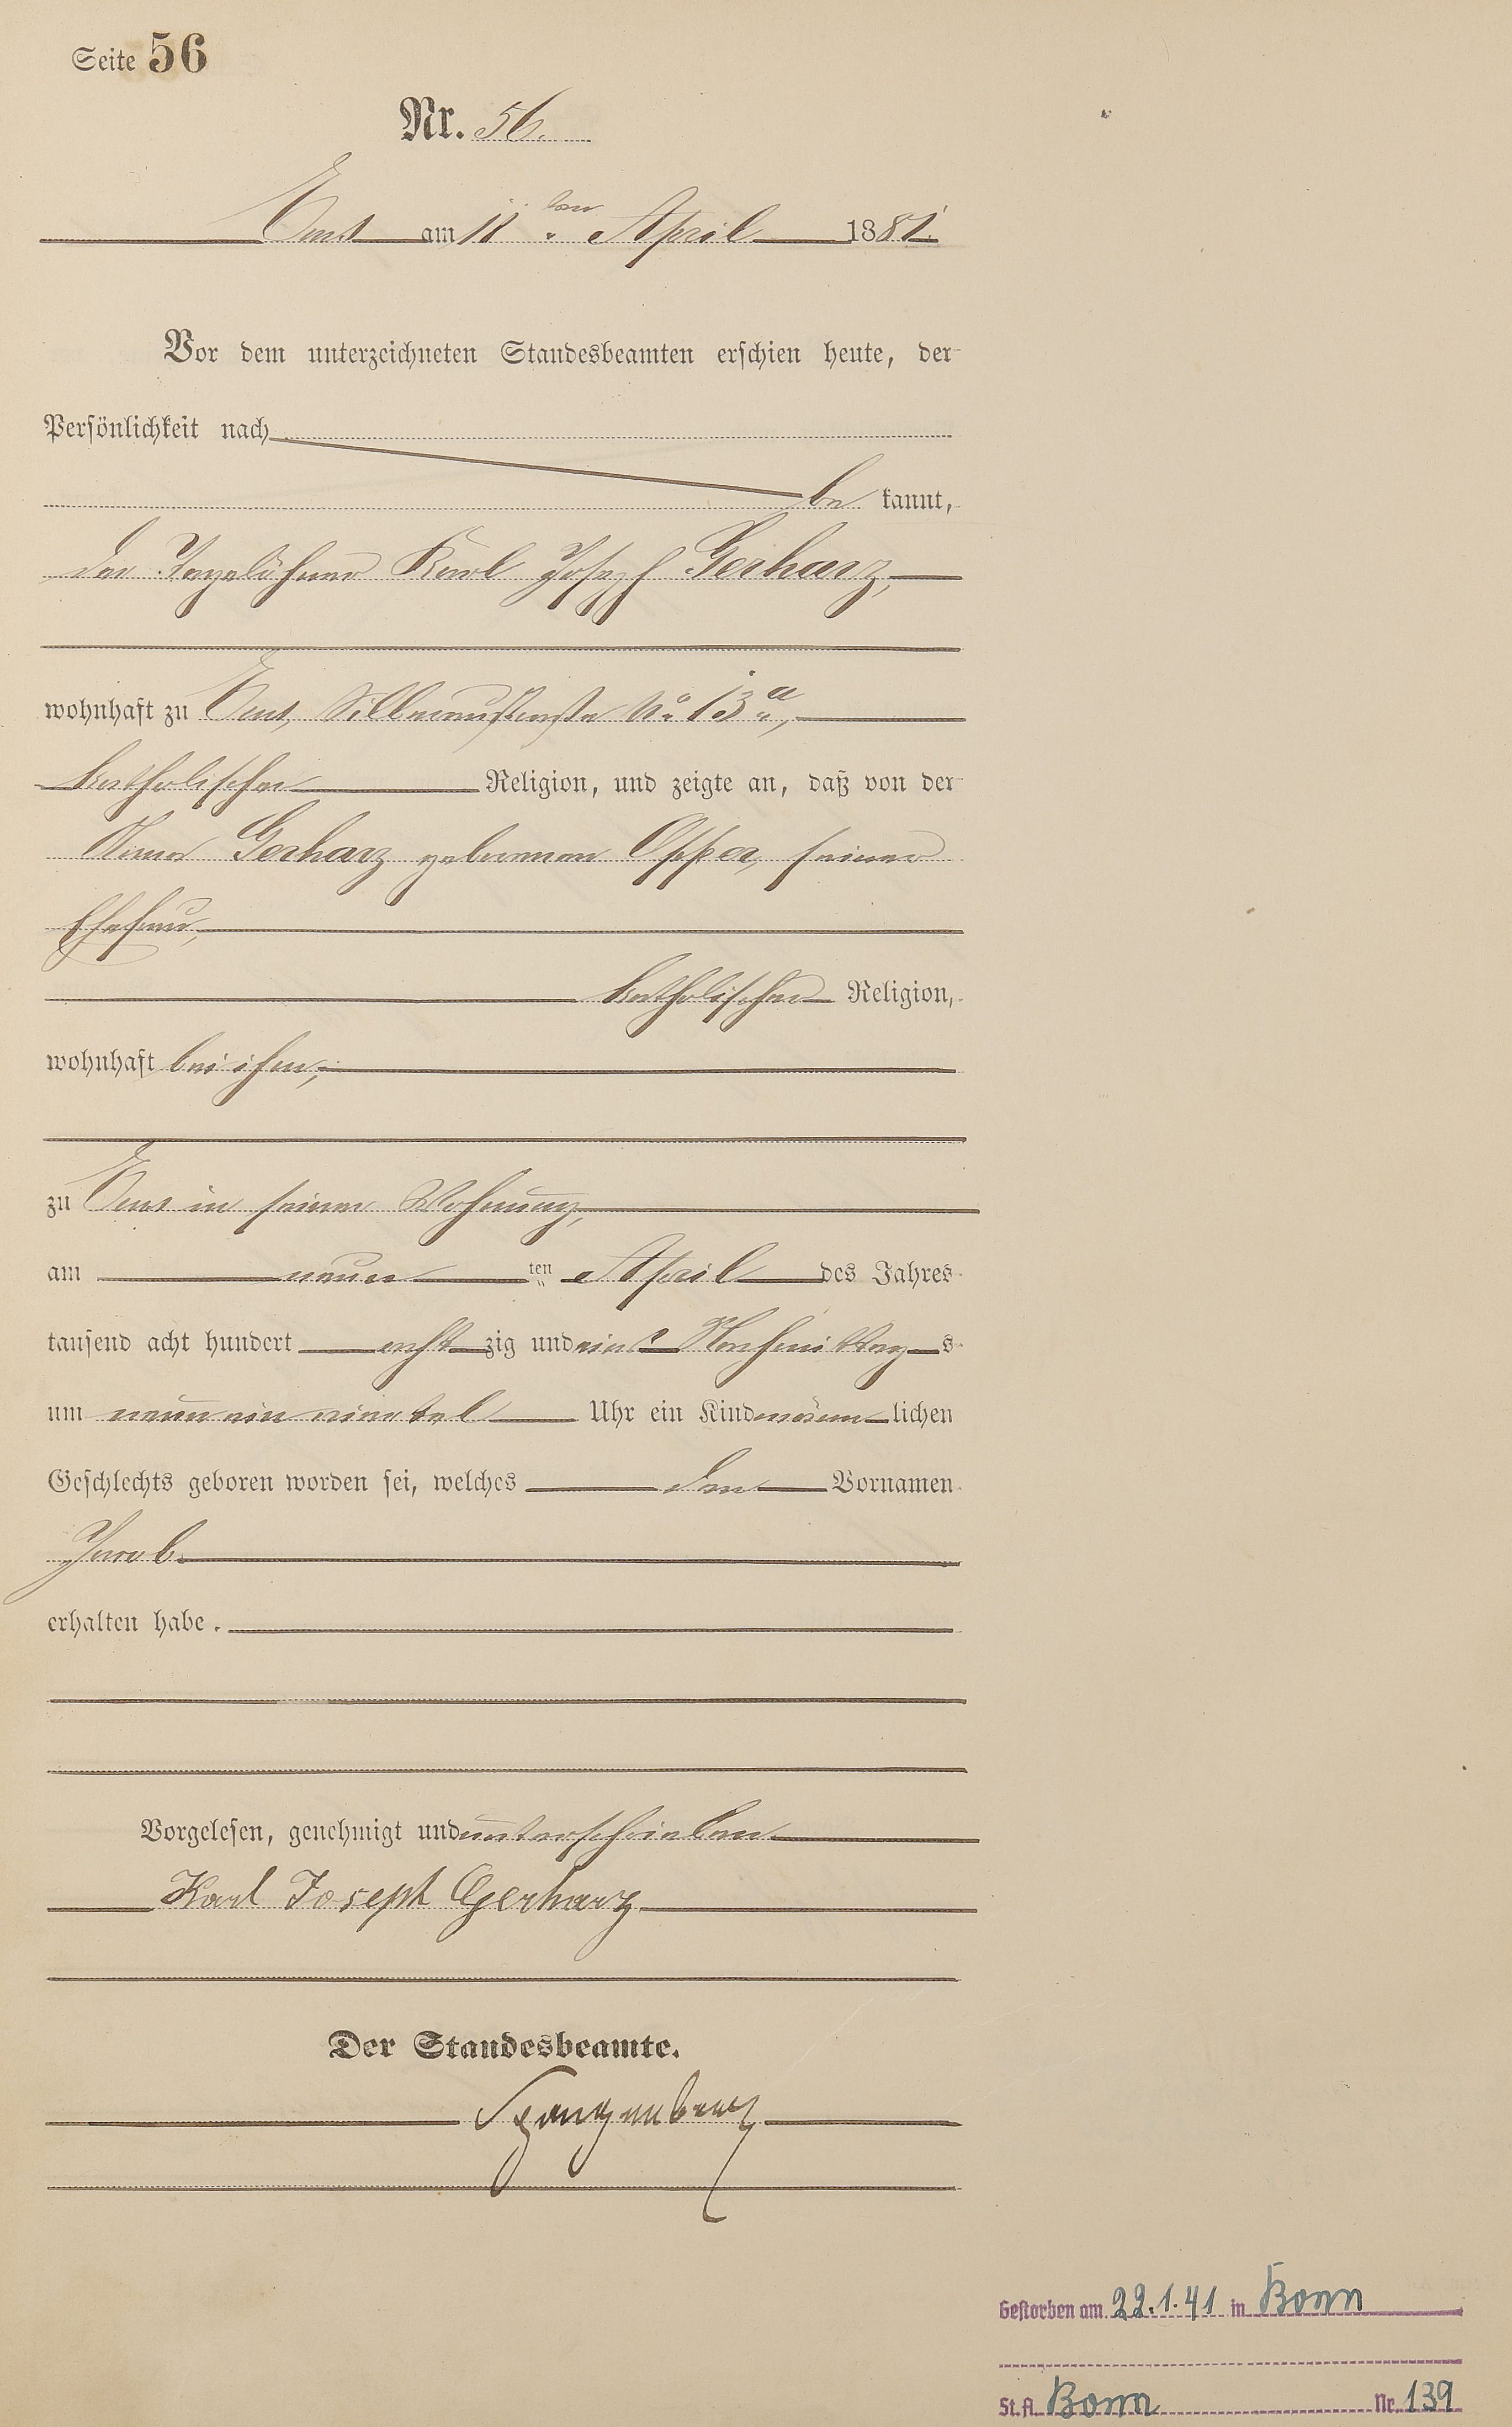 Seite 56
Nr. 56.
Ems am 11ten April 1881.
Vor dem unterzeichneten Standesbeamten erschien heute, der
Persönlichkeit nach
be kannt,
der Tagelöhner Karl Joseph Gerharz,
wohnhaft zu Ems, Silberaustraße No 13a,
katholischer Religion, und zeigte an, daß von der
Gerharz geborenen Opper, seiner
Ehefrau,
katholischer Religion,
wohnhaft bei ihm,
zu Ems in seiner Wohnung,
am neun ten April des Jahres
tausend acht hundert acht zig und eins Nachmittag s
um neun ein viertel Uhr ein Kind männ lichen
Geschlechts geboren worden sei, welches den Vornamen
Jacob
erhalten habe.
Vorgelesen, genehmigt und unterschrieben
Karl Joseph Gerharz
Der Standesbeamte.
Spangenberg
Gestorben am 22.1.41 in Bonn
St. A. Bonn Nr. 139